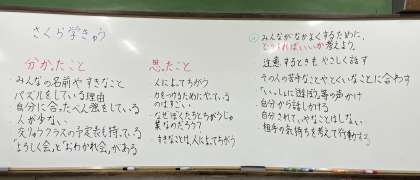 さくら学きゅう
分かったこと
・みんなの名前やすきなこと
・パズルをしている理由
・自分に合ったべん強をしている
・人が少ない
・交りゅうクラスの予定表も持っている
・「ようしく会」と「おわかれ会」がある
思ったこと
・人によってちがう
・力をつけるためにやっているのはすごい
・なぜぼくたちとちがうじゅ業なのだろう?
・すきなことは人によってちがう
みんながなかよくするために、
どうすればいいか考えよう。
・注意するときもやさしく話す
・その人の苦手なことやとくいなことに合わす
・「いっしょに遊ぼう」等の声かけ
・自分から話しかける
・自分されていやなことはしない
・相手の気持ちを考えて行動する